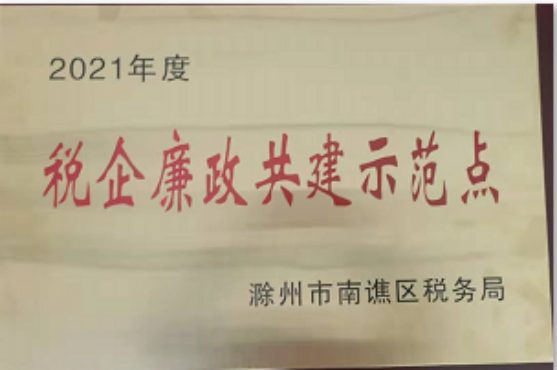 2021年度
税企廉政共建示范点
滁州市南谯区税务局